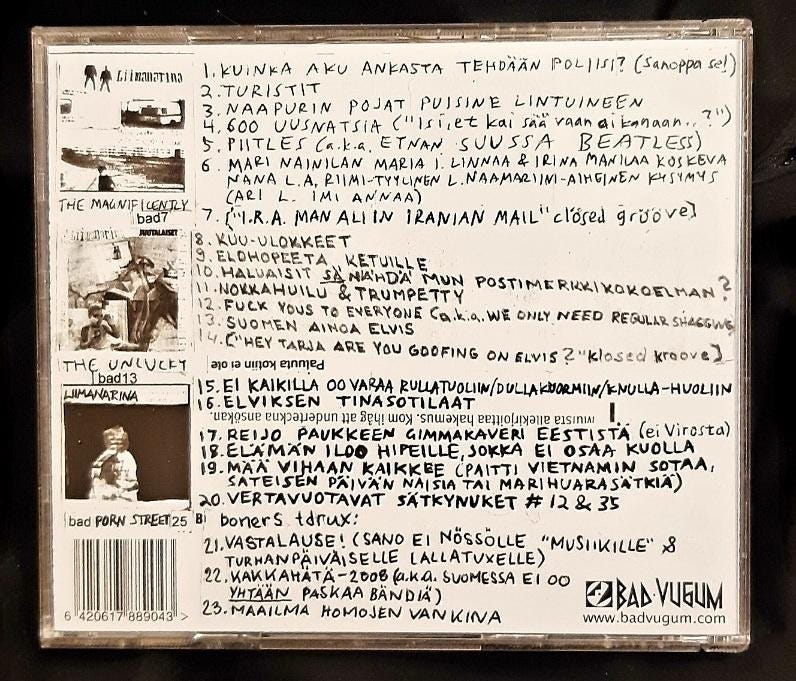 Liimanarina
THE MAGNIFICENTLY
bad7
JUUTALAISET
THE UNLUCKY
bad13
LIIMANARINA
bad PORN STREET 25
6 420617 889043 >
1. KUINKA AKU ANKASTA TEHDÄÄN POLIISI? (Sanoppa se!)
2. TURISTIT
3. NAAPURIN POJAT PUISINE LINTUINEEN
4. 600 UUSNATSIA ("Isi, et kai sää vaan aikanaan..?")
5. PIITLES (a.k.a. ETNAN SUUSSA BEATLESS)
6. MARI NAINILAN MARIA I. LINNAA & IRINA MANILAA KOSKEVA
NANA L.A. RIIMI-TYYLINEN L.NAAMARIINI-AIHEINEN KYSYMYS
(ARI L. IMI ANNAA)
7. ["I.R.A. MAN ALI IN IRANIAN MAIL" clösed grööve]
8. KUU-ULOKKEET
9. ELOHOPEETA KETUILLE
10. HALUAISIT SÄ NÄHDÄ MUN POSTIMERKKIKOKOELMAN?
11. NOKKAHUILU & TRUMPETTY
12. FUCK YOUS TO EVERYONE (a.k.a. WE ONLY NEED REGULAR SHAGGING
13. SUOMEN AINOA ELVIS
14. ["HEY TARJA ARE YOU GOOFING ON ELVIS?" klosed kroove]
Paluuta kotiin ei ole
15. EI KAIKILLA OO VARAA RULLATUOLIIN/DULLAKUORMIIN/KNULLA-HUOLIIN
16. ELVIKSEN TINASOTILAAT
Muista allekirjoittaa hakemus. Kom ihåg att underteckna ansökan.
17. REIJO PAUKKEEN GIMMAKAVERI EESTISTÄ (ei Virosta)
18. ELÄMÄN ILOO HIPEILLE, JOKKA EI OSAA KUOLLA
19. MÄÄ VIHAAN KAIKKEE (PAITTI VIETNAMIN SOTAA,
SATEISEN PÄIVÄN NAISIA TAI MARIHUARASÄTKIÄ)
20. VERTAVUOTAVAT SÄTKYNUKET # 12 & 35
B boners tdrux:
21. VASTALAUSE! (SANO EI NÖSSÖLLE "MUSIIKILLE" &
TURHANPÄIVÄISELLE LALLATUXELLE)
22. KAKKAHÄTÄ-2008 (a.k.a. SUOMESSA EI OO
YHTÄÄN PASKAA BÄNDIÄ)
23. MAAILMA HOMOJEN VANKINA
BAD·VUGUM
www.badvugum.com